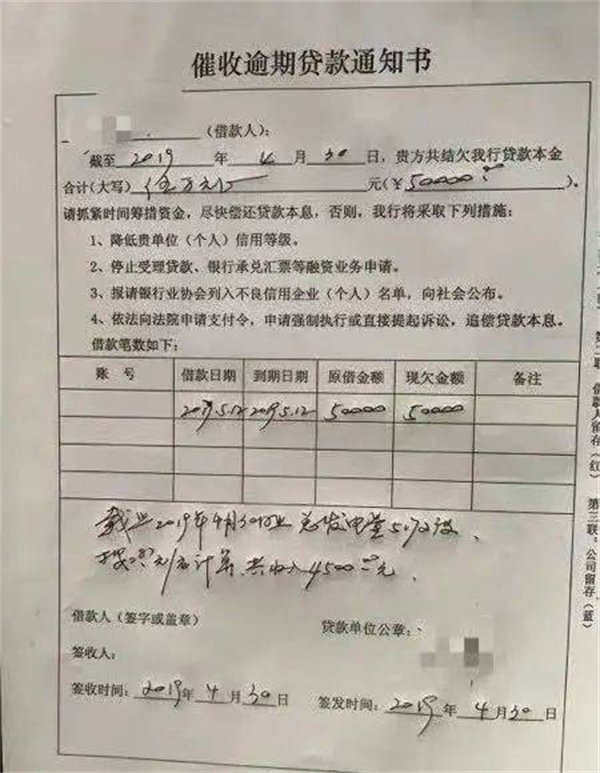 催收逾期贷款通知书
（借款人）：
截至 2019 年 4 月 30 日，贵方共结欠我行贷款本金
合计（大写） 伍万元 元（￥ 50000 ）。
请抓紧时间筹措资金，尽快偿还贷款本息，否则，我行将采取下列措施：
1、降低贵单位（个人）信用等级。
2、停止受理贷款、银行承兑汇票等融资业务申请。
3、报请银行业协会列入不良信用企业（个人）名单，向社会公布。
4、依法向法院申请支付令，申请强制执行或直接提起诉讼，追偿贷款本息。
借款笔数如下：
账 号 借款日期 到期日期 原借金额 现欠金额 备注
2019.5.12 50000 50000
2019年4月30日 总发电量
计算 共收入4500 元
借款人（签字或盖章） 贷款单位公章：
签收人：
签收时间：2019年 4 月 30 日 签发时间：2019 年 4 月 30 日
借款人留存（红）
第三联：公司留存（蓝）